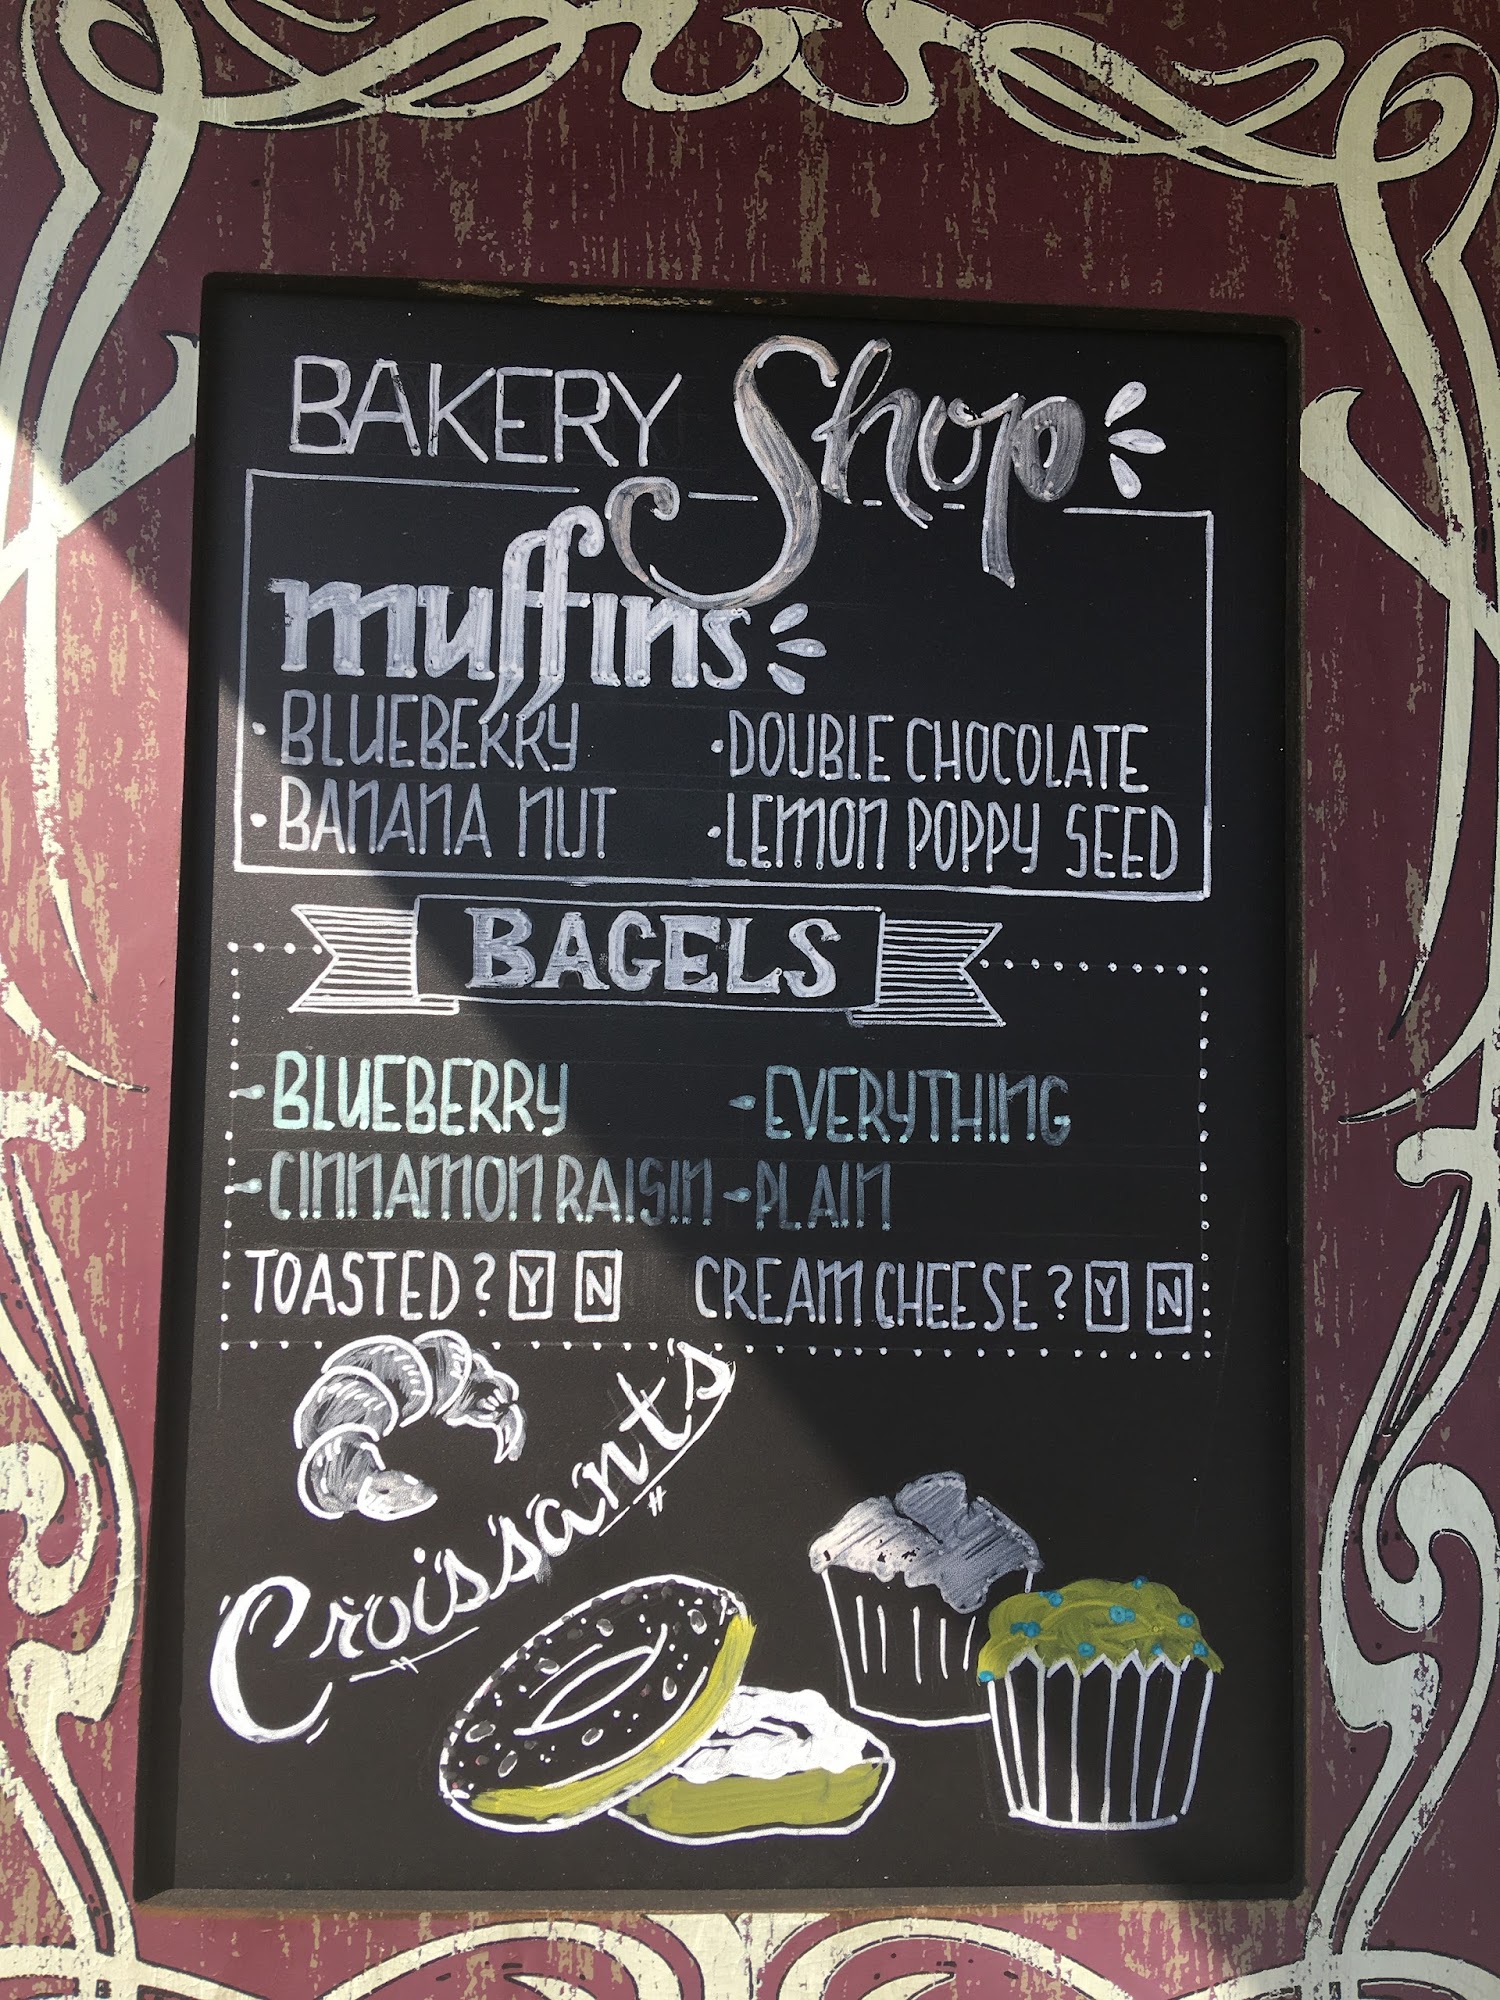 BAKERY Shop
muffins
• BLUEBERRY • DOUBLE CHOCOLATE
• BANANA NUT • LEMON POPPY SEED
BAGELS
- BLUEBERRY - EVERYTHING
- CINNAMON RAISIN - PLAIN
TOASTED? Y N CREAM CHEESE? Y N
Croissants